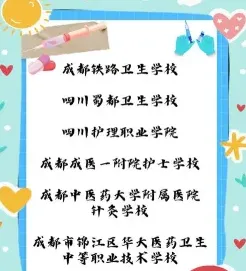 成都铁路卫生学校
四川蜀都卫生学校
四川护理职业学院
成都成医一附院护士学校
成都中医药大学附属医院
针灸学校
成都市锦江区华大医药卫生
中等职业技术学校